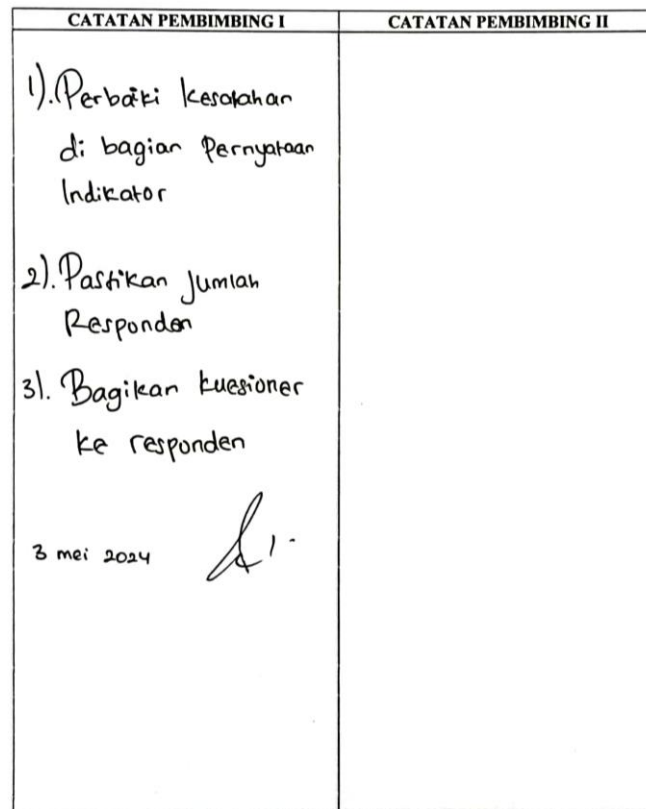 CATATAN PEMBIMBING I
CATATAN PEMBIMBING II
1). Perbaiki kesalahan
di bagian Pernyataan
Indikator
2). Pastikan Jumlah
Responden
3). Bagikan kuesioner
ke responden
3 mei 2024